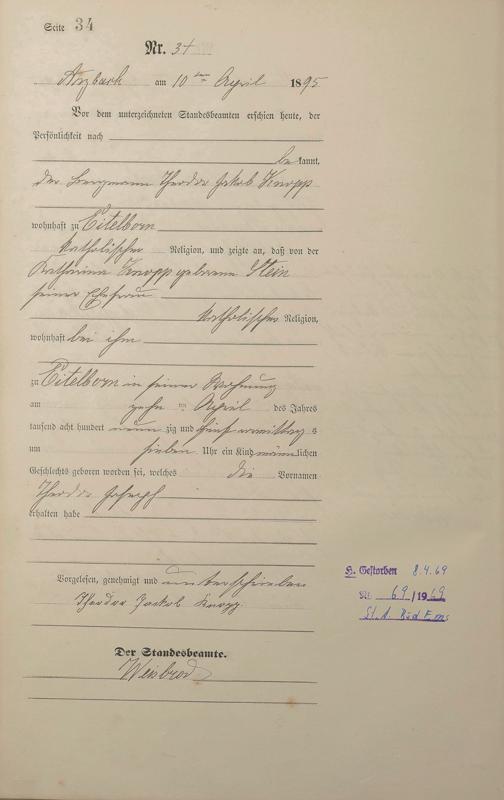 Seite 34
Nr. 34
Arzbach am 10ten April 1895
Vor dem unterzeichneten Standesbeamten erschien heute, der
Persönlichkeit nach
bekannt,
der Bergmann Theodor Jakob Knopp
wohnhaft zu Eitelborn
katholischer Religion, und zeigte an, daß von der
Katharina Knopp geborene Stein
seiner Ehefrau
katholischer Religion,
wohnhaft bei ihm
zu Eitelborn in seiner Wohnung
am zehn ten April des Jahres
tausend acht hundert neunzig und fünf vormittags
um sieben Uhr ein Kind männlichen
Geschlechts geboren worden sei, welches die Vornamen
Theodor Joseph
erhalten habe
Vorgelesen, genehmigt und unterschrieben
Theodor Jackob Knopp.
Der Standesbeamte.
Weisbrod
H. Gestorben 8.4.69
Nr. 69/1969
St. A. Bad Ems